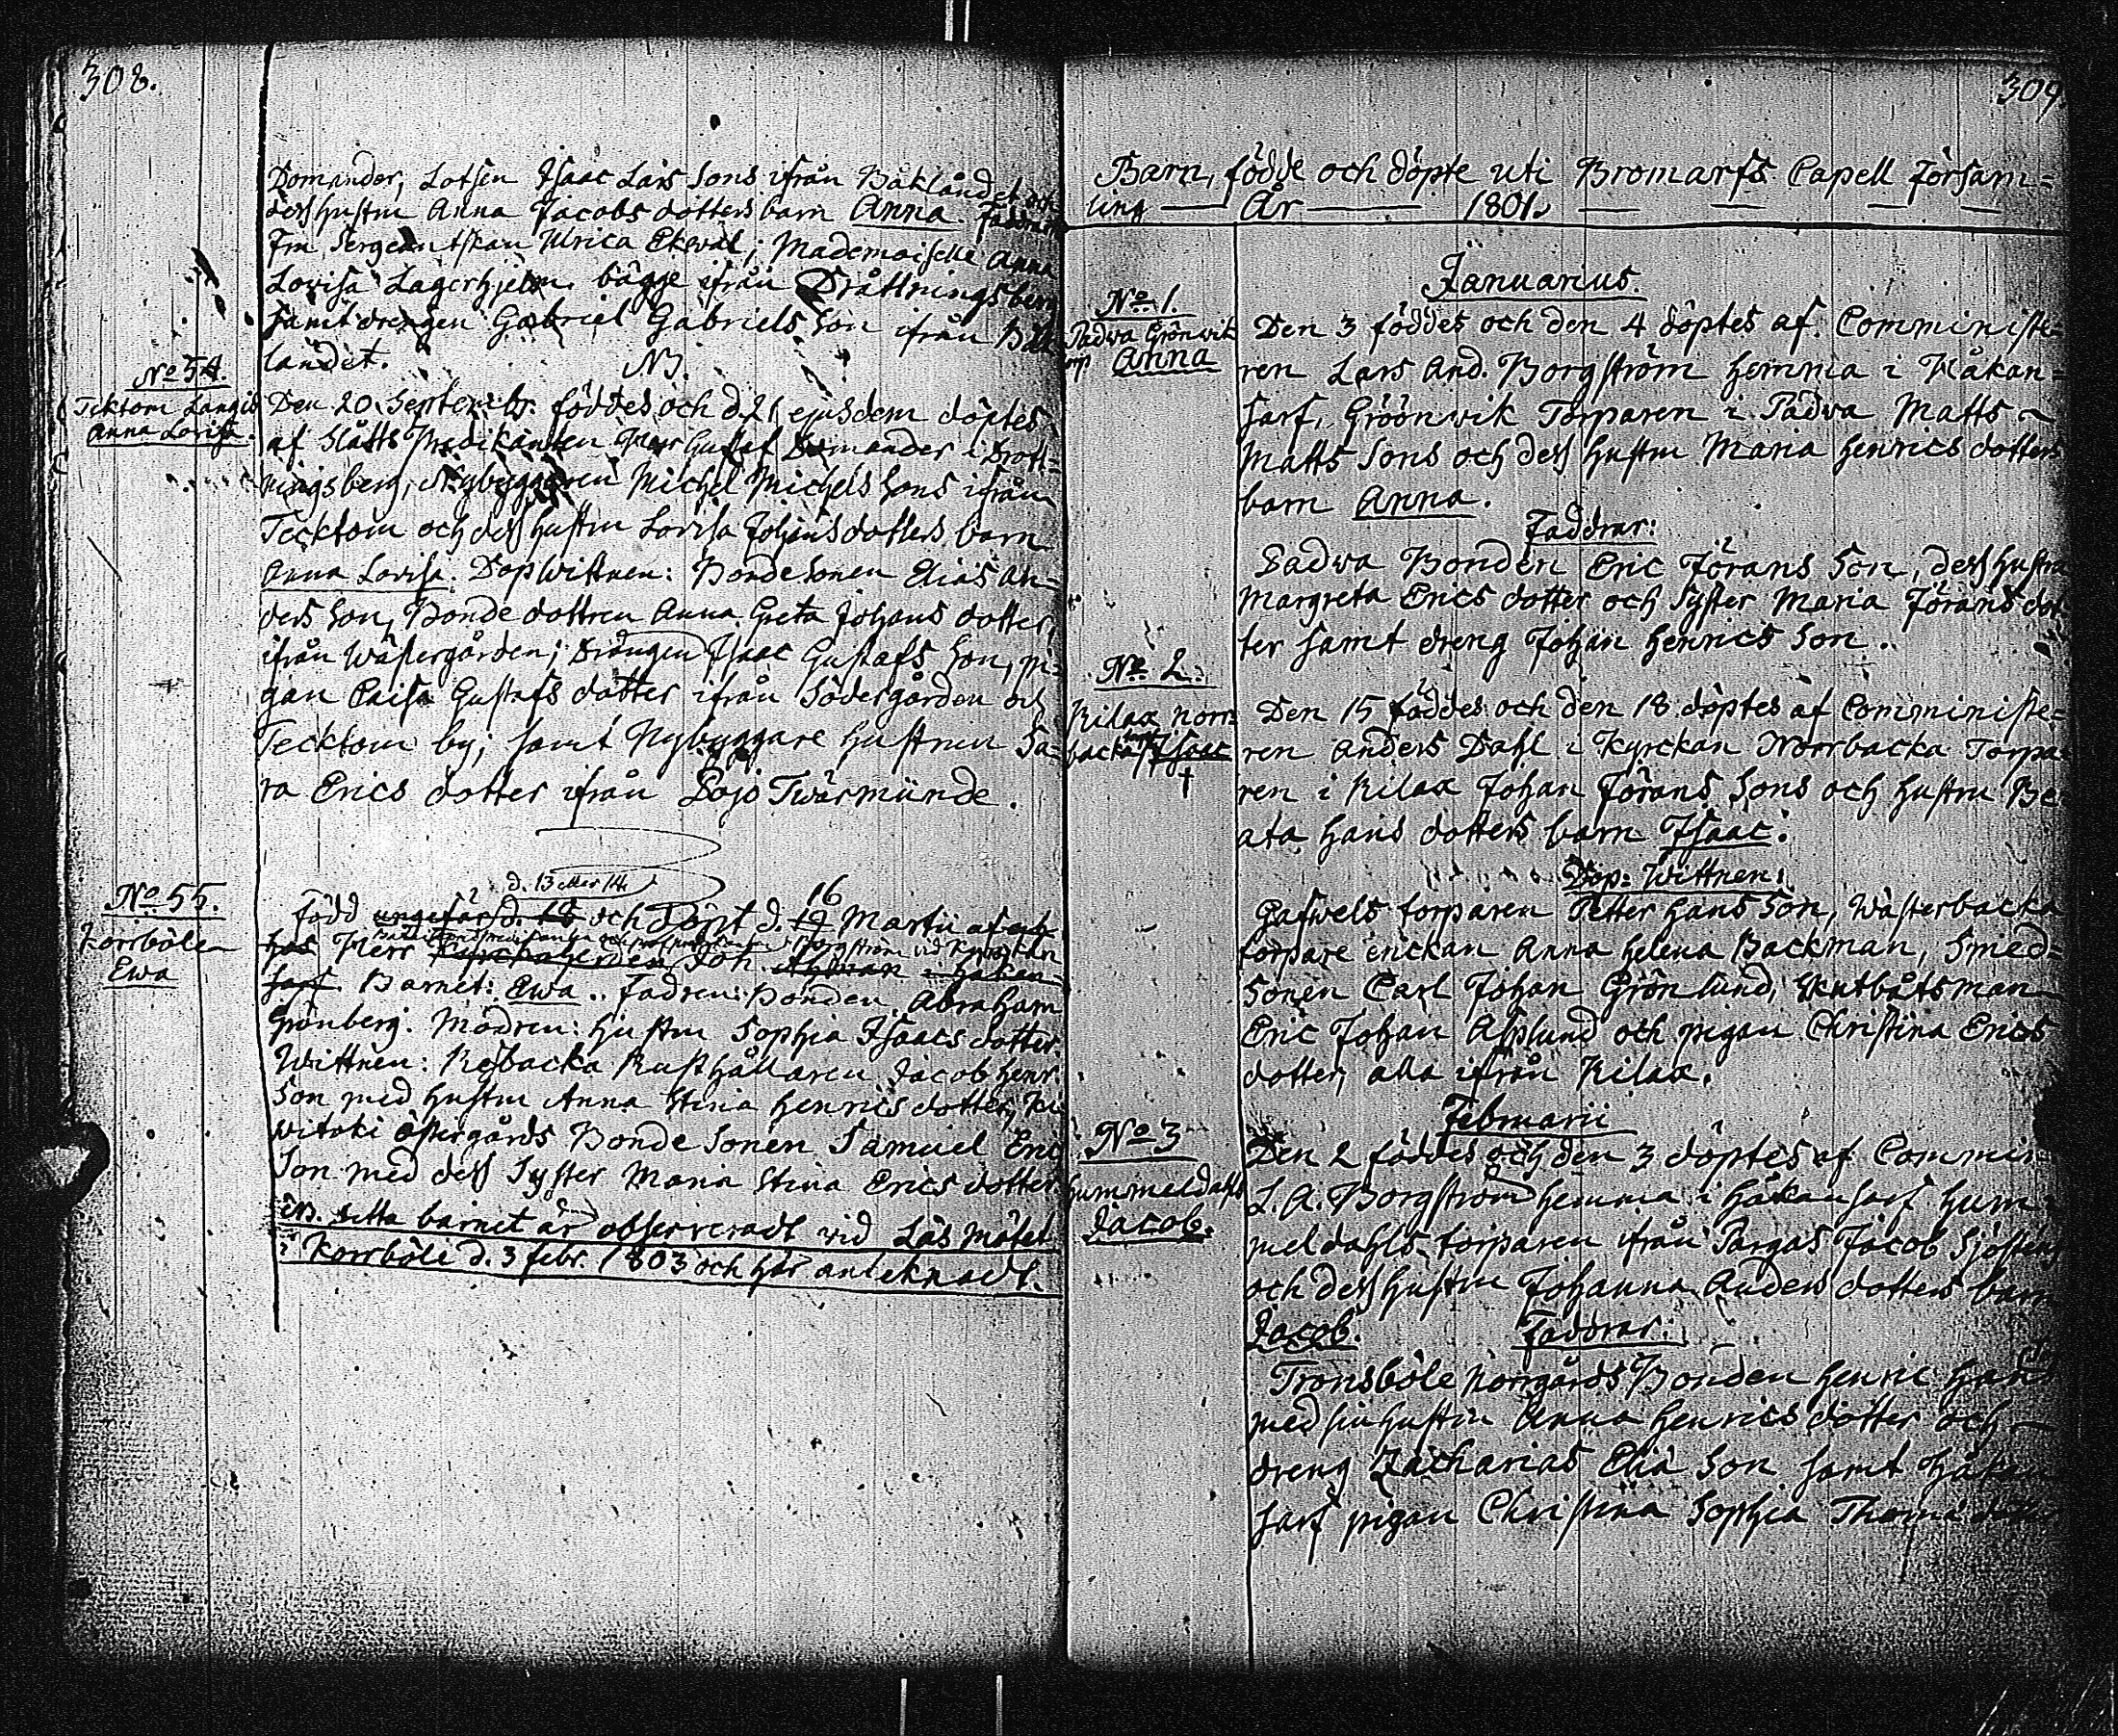 308.
Domander, Lotsen Isaac Lars Sons ifrån Båklandet och
dess hustru Anna Jacobs dotters barn Anna. Faddrar
Fru Sergeantskan Ulrica Ekeval; Mademoiselle Anna
Lovisa Lagerhjelm bägge ifrån Dråttningsberg
samt drengen Gabriel Gabriels Son ifrån Båk
landet.
NB.
No 54.
Tecktom Langis
Anna Lovisa.
Den 20 Septembr. föddes och d. 21 ejusdem döptes
af Slåtts Predikanten Herr Gustaf Domander i Drott-
ningsberg, Nybyggaren Michel Michels Sons ifrån
Tecktom och dess hustru Lovisa Johans dotters barn
Anna Lovisa. Dopwittnen: Bondesonen Elias An-
ders Son, Bonde dottren Anna Greta Johans dotter,
ifrån Wästergården; Drängen Isaac Gustafs Son, pi-
gan Caisa Gustafs dotter ifrån Södergården och
Tecktom by; samt Nybyggare hustrun Sa-
ra Erics dotter ifrån Pojo Twärmünde.
No 55.
Korrböle
Ewa
d. 13 eller 14.
16
född ungefär d. 18 och döpt d. 19 Martii af
Herr Joh. Borgström vid Kyrckan
Barnet: Ewa. Fadren: Bonden Abraham
Grönberg. Modren: Hustru Sophia Isaacs dotter.
Wittnen: Rejbacka Rusthållaren Jacob Henr.
Son med hustru Anna Stina Henrics dotter, Ki
witoki Östergårds Bonde Sonen Samuel Eric
Son med dess Syster Maria Stina Erics dotter
NB. detta barnet är observeradt vid Läs Mötet
i Korrböle d. 3 febr. 1803 och här antecknadt.
309
Barn, födde och döpte uti Bromarfs Capell Församl=
ling — År — 1801. —
Januarius.
No 1.
Padwa Grönwik
Anna
Den 3 föddes och den 4 döptes af Comministe=
ren Lars And. Borgström hemma i Håkan=
sarf, Gröönwik Torparen i Padva Matts
Matts Sons och dess hustru Maria Henrics dotters
barn Anna.
Faddrar:
Padwa Bonden Eric Jörans Son, dess hustru
Margreta Erics dotter och Syster Maria Jörans dot
ter samt dreng Johan Henrics Son.
No 2.
Kilax Norr=
backa Isaac
†
Den 15 föddes och den 18 döptes af Comministe=
ren Anders Dahl i Kyrckan Norrbacka Torpa
ren i Kilax Johan Jörans Sons och hustru Be
ata Hans dotters barn Isaac.
Dop: Wittnen:
Gafwels torparen Petter Hans Son, Wästerbacka
torpare enckan Anna Helena Backman, Smed=
Sonen Carl Johan Grönlund, Skutbåtsman
Eric Johan Asplund och pigan Christina Erics
dotter, alla ifrån Kilax.
Februarii
No 3
Hummeldahls
Jacob.
Den 2 föddes och den 3 döptes af Commin
L. A. Borgström hemma i Håkansarf Hum=
meldahls torparen ifrån Pargas Jacob Sjöstens
och dess hustru Johanna Anders dotters barn
Jacob.
Faddrar:
Tronsböle Norrgårds Bonden Henric Hans
med sin hustru Anna Henrics dotter och
dreng Zacharias Elia Son samt Håkan
sarf pigan Christina Sophia Thoma